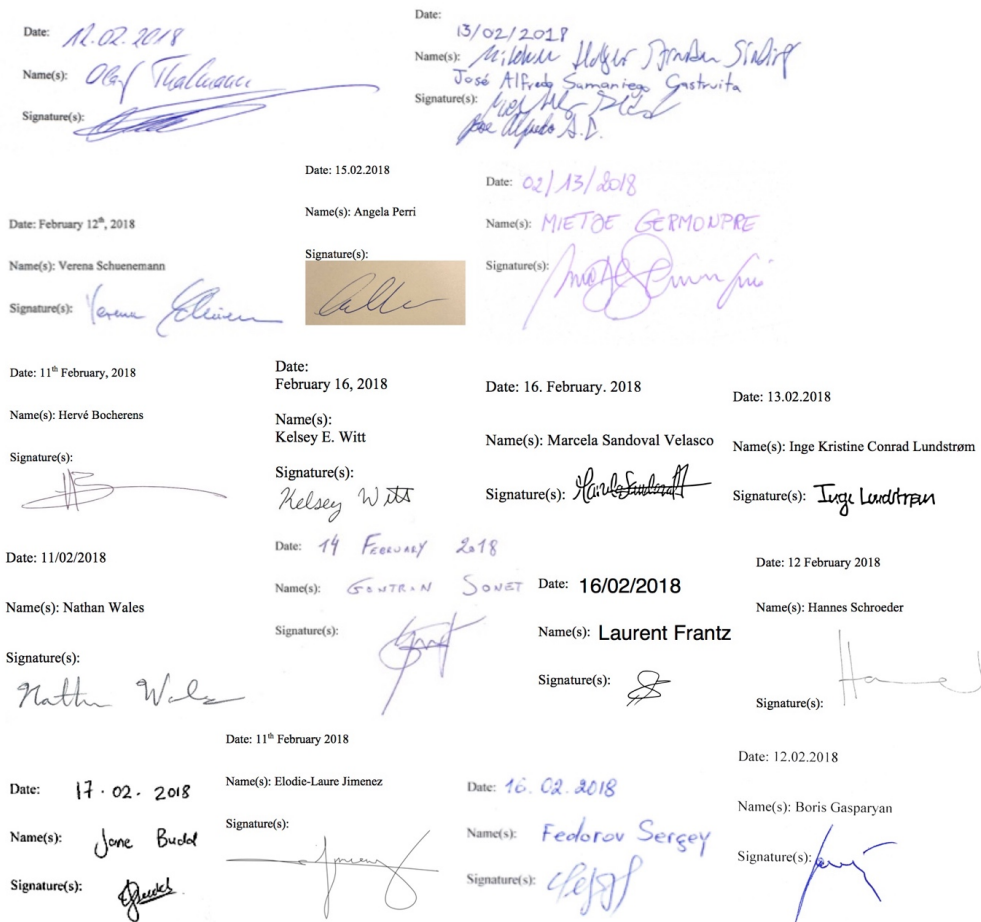 Date: 12.02.2018
Name(s): Olaf Thalmann
Signature(s):
Date:
13/02/2018
Name(s): Mikkel Holger Strander Sinding
José Alfredo Samaniego Gastruita
Signature(s):
Jose Alfredo S.
Date: February 12th, 2018
Name(s): Verena Schuenemann
Signature(s): Verena
Date: 15.02.2018
Name(s): Angela Perri
Signature(s):
Date: 02/13/2018
Name(s): MIETJE GERMONPRE
Signature(s):
Date: 11th February, 2018
Name(s): Hervé Bocherens
Signature(s):
Date:
February 16, 2018
Name(s):
Kelsey E. Witt
Signature(s):
Kelsey Witt
Date: 16. February. 2018
Name(s): Marcela Sandoval Velasco
Signature(s):
Date: 13.02.2018
Name(s): Inge Kristine Conrad Lundstrøm
Signature(s): Inge Lundstrøm
Date: 11/02/2018
Name(s): Nathan Wales
Signature(s):
Nathan Wales
Date: 14 FEBRUARY 2018
Name(s): GONTRAN SONET
Signature(s):
Date: 16/02/2018
Name(s): Laurent Frantz
Signature(s):
Date: 12 February 2018
Name(s): Hannes Schroeder
Signature(s):
Date: 17.02.2018
Name(s): Jane Budd
Signature(s):
Date: 11th February 2018
Name(s): Elodie-Laure Jimenez
Signature(s):
Date: 16.02.2018
Name(s): Fedorov Sergey
Signature(s):
Date: 12.02.2018
Name(s): Boris Gasparyan
Signature(s):